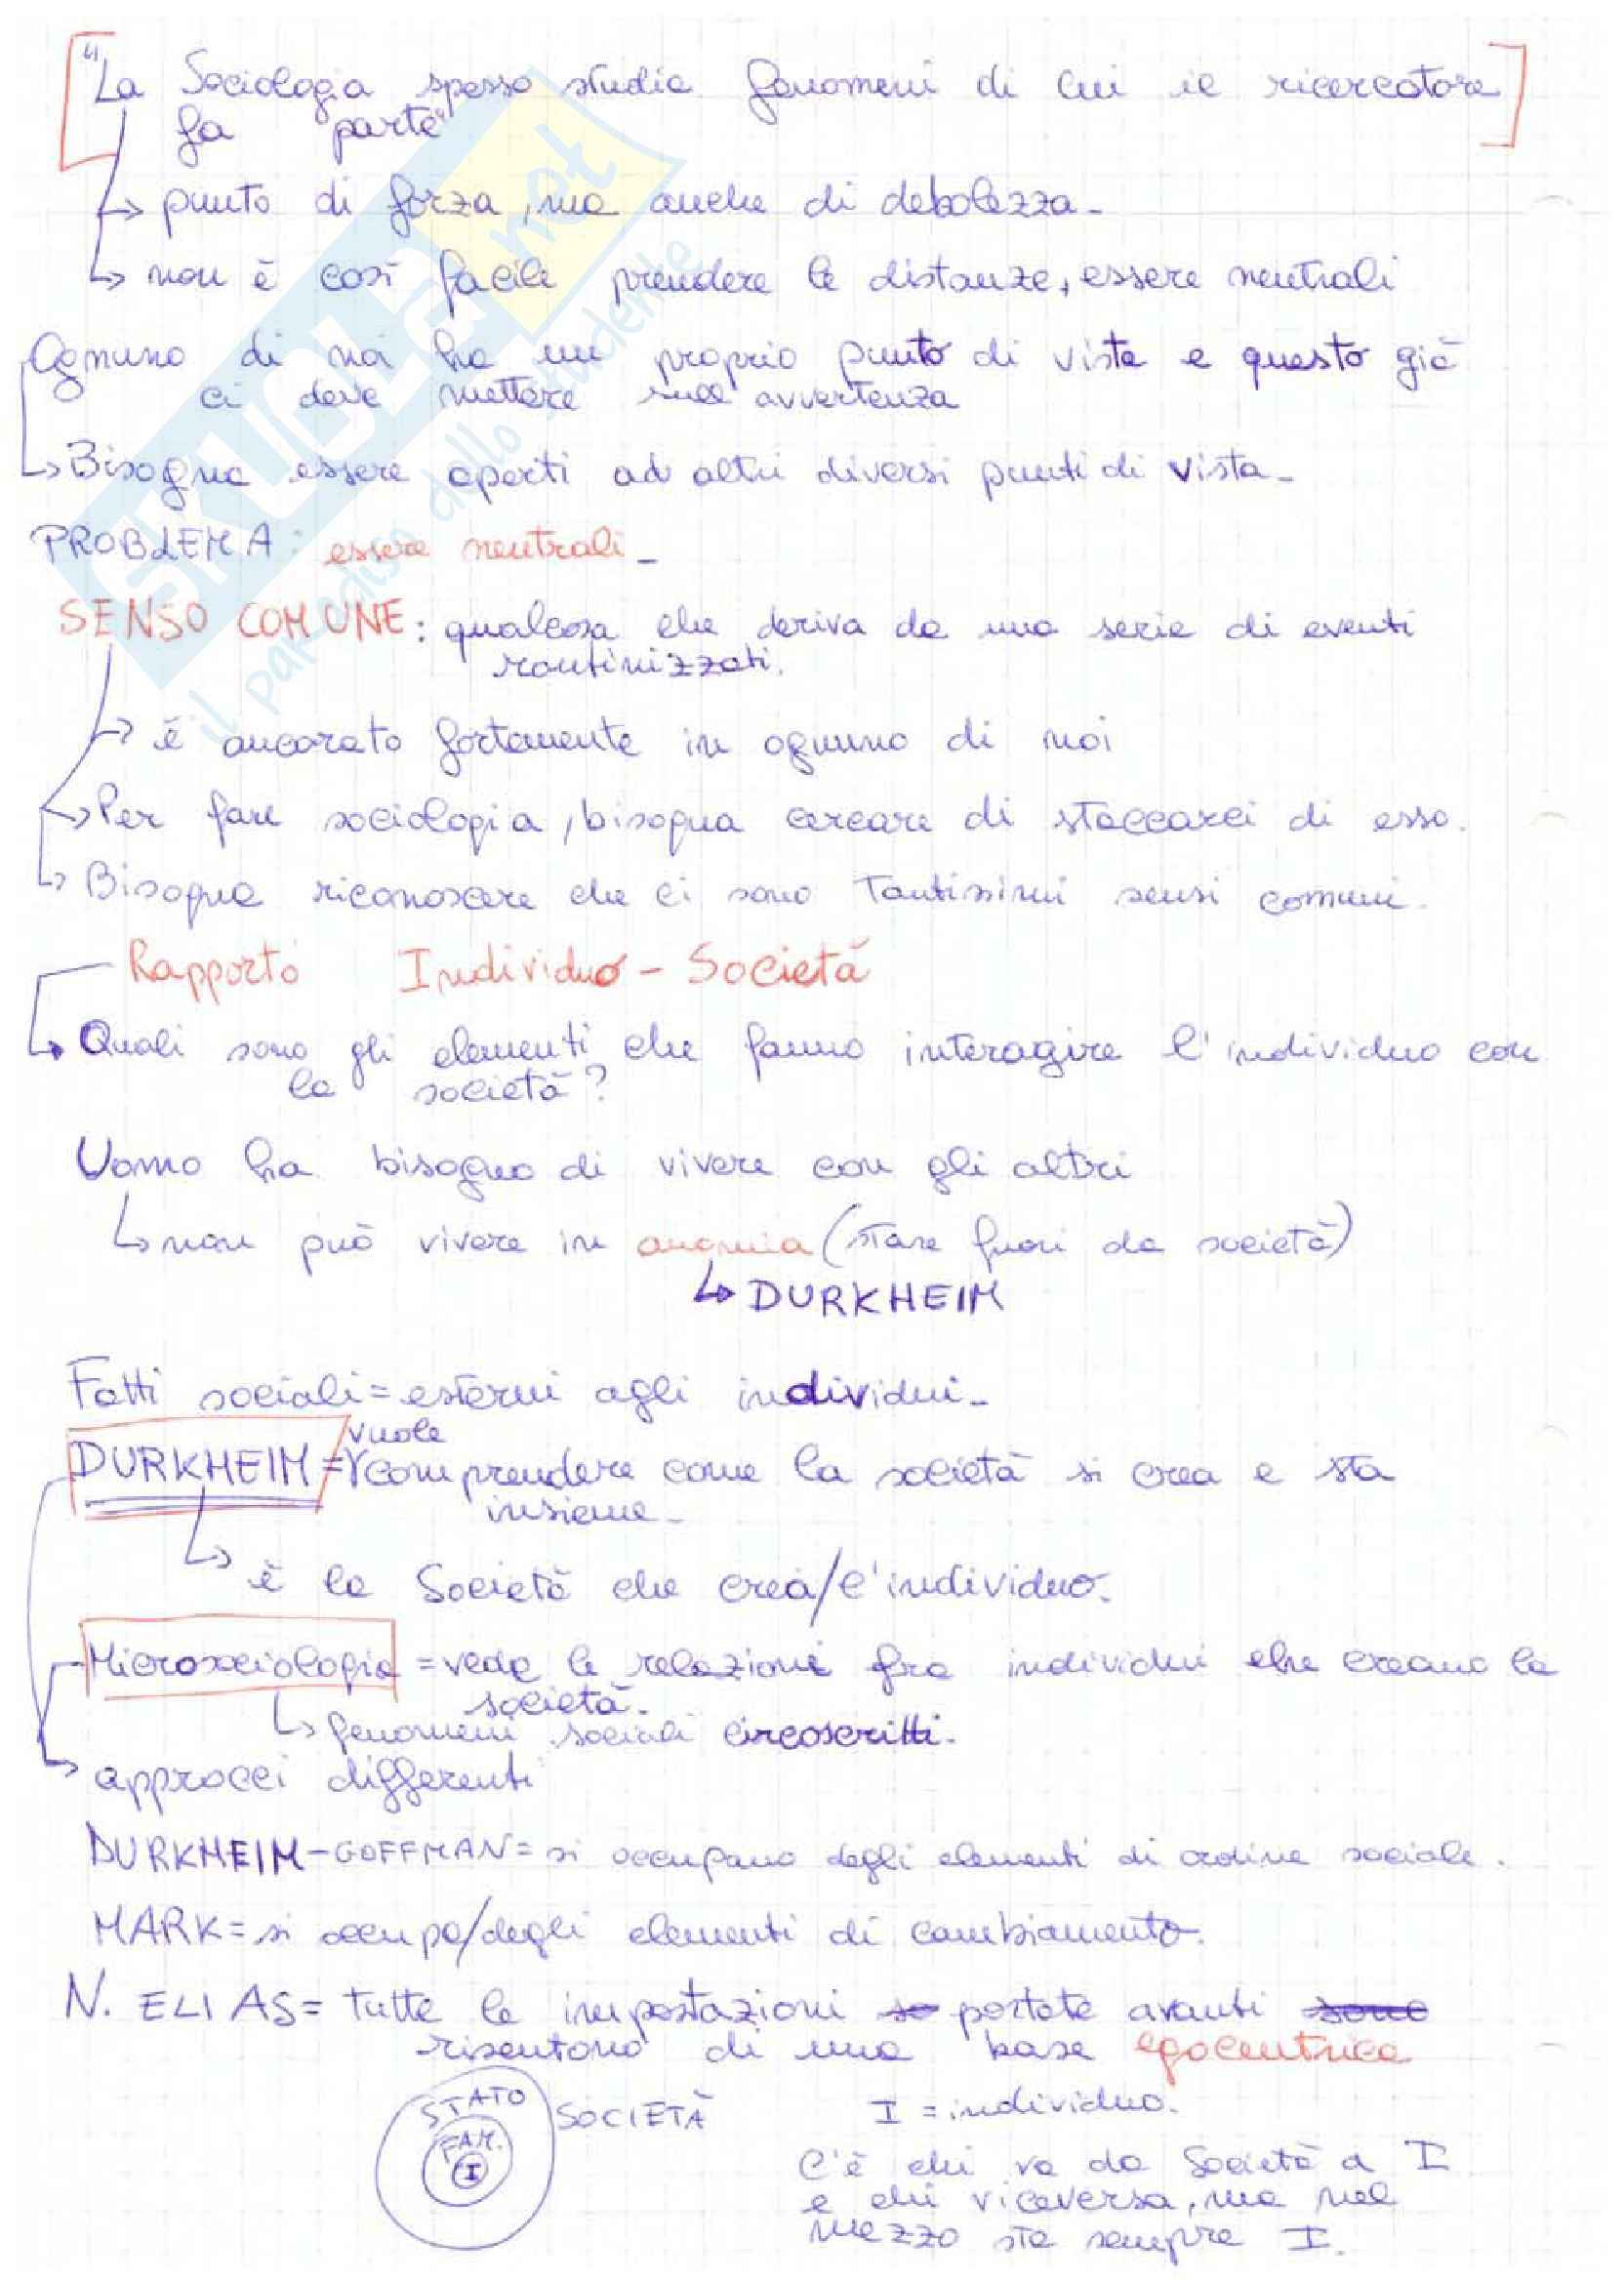 "La Sociologia spesso studia fenomeni di cui il ricercatore
fa parte"
↳ punto di forza, ma anche di debolezza.
↳ non è così facile prendere le distanze, essere neutrali
Ognuno di noi ha un proprio punto di vista e questo già
ci deve mettere sull'avvertenza
↳ Bisogna essere aperti ad altri diversi punti di vista.
PROBLEMA: essere neutrali.
SENSO COMUNE: qualcosa che deriva da una serie di eventi
routinizzati.
↳ è ancorato fortemente in ognuno di noi
↳ Per fare sociologia, bisogna cercare di staccarci di esso.
↳ Bisogna riconoscere che ci sono tantissimi sensi comuni.
Rapporto Individuo - Società
↳ Quali sono gli elementi che fanno interagire l'individuo con
la società?
Uomo ha bisogno di vivere con gli altri
↳ non può vivere in anomia (stare fuori da società)
↳ DURKHEIM
Fatti sociali = esterni agli individui.
vuole
DURKHEIM = comprendere come la società si crea e sta
insieme.
↳ è la Società che crea/l'individuo.
Microsociologia = vede le relazioni fra individui che creano la
società.
↳ fenomeni sociali circoscritti.
↳ approcci differenti
DURKHEIM - GOFFMAN = si occupano degli elementi di ordine sociale.
MARK = si occupa/degli elementi di cambiamento.
N. ELIAS = tutte le impostazioni so portate avanti sono
risentono di una base egocentrica
STATO SOCIETÀ I = individuo.
FAM.
I
C'è chi va da Società a I
e chi viceversa, ma nel
mezzo sta sempre I.
SKUOLA.net
il paradiso dello studente